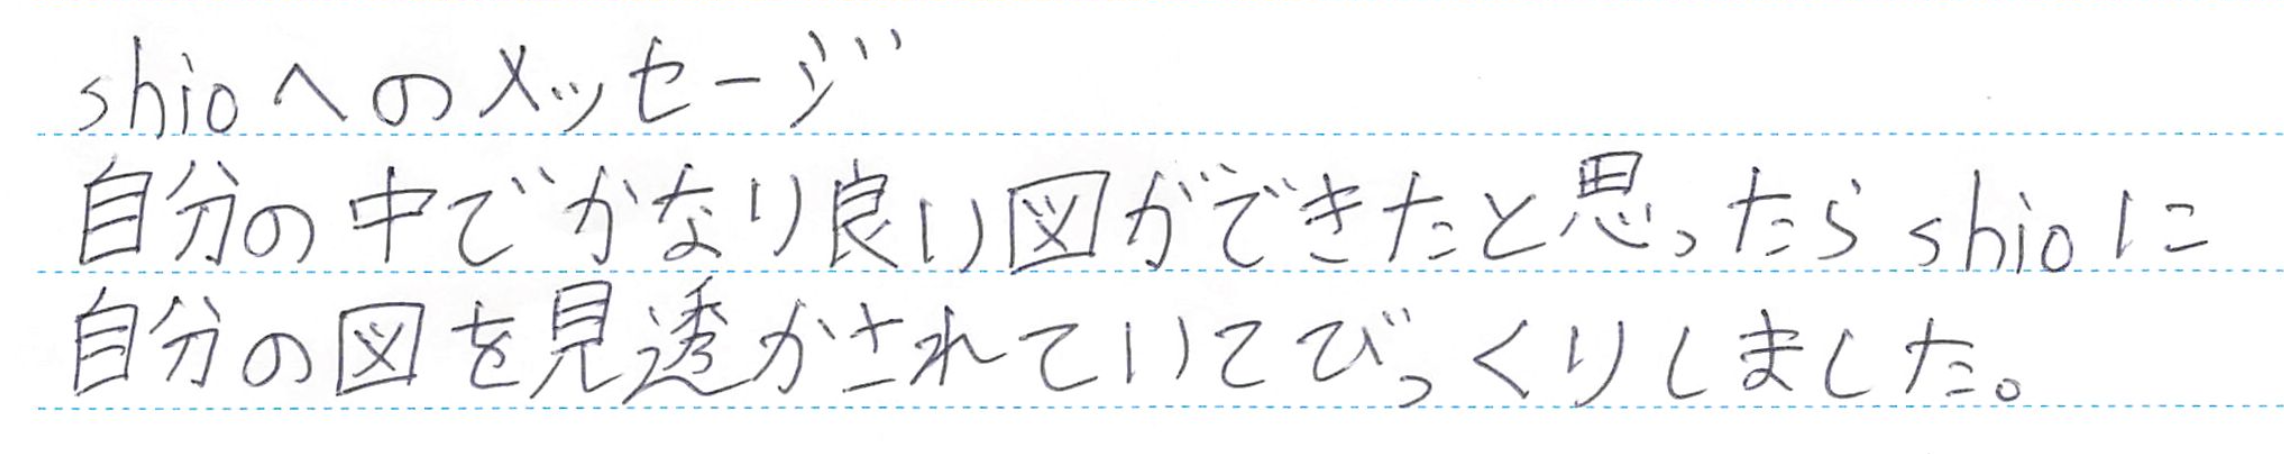 shioへのメッセージ
自分の中でかなり良い図ができたと思ったらshioに
自分の図を見透かされていてびっくりしました。